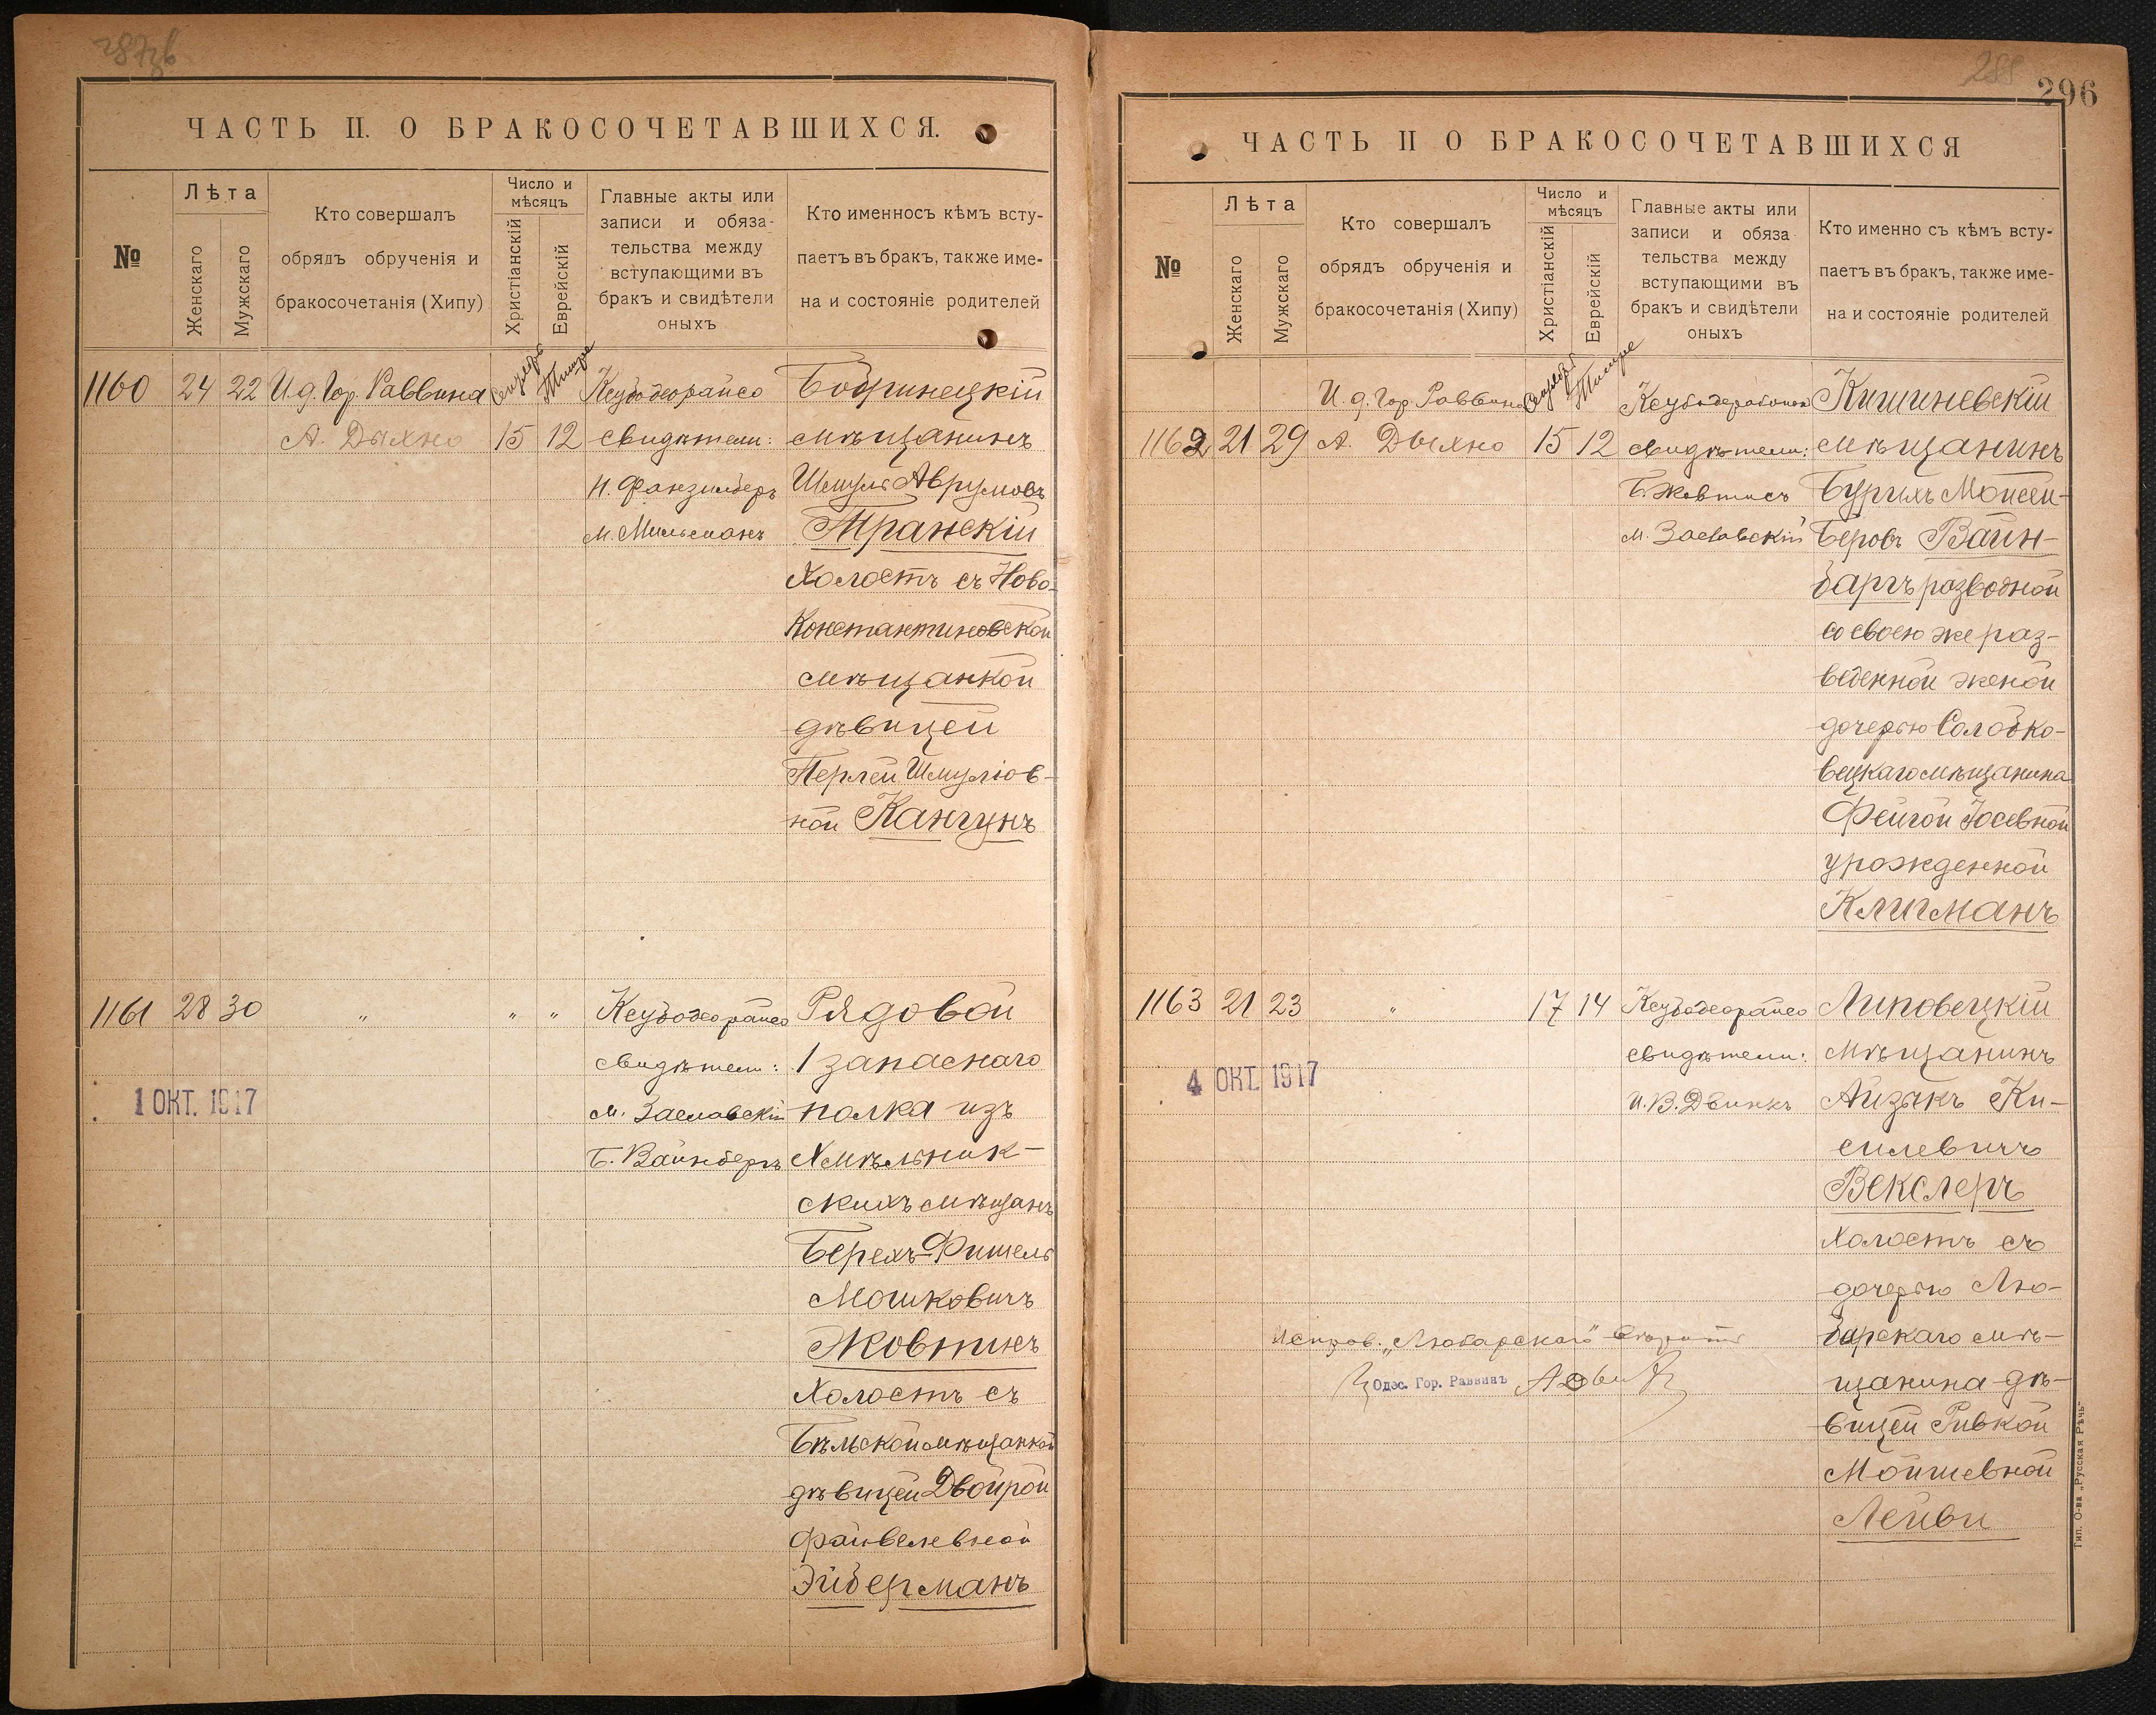 ЧАСТЬ II. О БРАКОСОЧЕТАВШИХСЯ.
№
Лѣта
Женскаго
Мужскаго
Кто совершалъ
обрядъ обрученія и
бракосочетанія (Хипу)
Число и
мѣсяцъ
Христіанскій
Еврейскій
Главные акты или
записи и обяза-
тельства между
вступающими въ
бракъ и свидѣтели
оныхъ
Кто именносъ кѣмъ всту-
паетъ въ бракъ, также име-
на и состояніе родителей
1160 24 22 И.д. Гор. Раввина
А. Дыхно 15 12
свидѣтели:
М. Мильманъ
Бобринецкій
мѣщанинъ
Шмуль Аврумовъ
Транскій
Холостъ съ Ново-
Константиновской
мѣщанкой
дѣвицей
Перлей Шмуліов-
ной Кангунъ
1161 28 30 " " "
1 ОКТ. 1917
свидѣтели:
М. Заславскій
Б. Вайнберъ
Рядовой
1 запаснаго
полка изъ
Хмѣльник-
скихъ мѣщанъ
Берехъ-Фишель
Мошковичъ
Жовтисъ
Холостъ съ
Бѣльской мѣщанкой
дѣвицей Двойрой
Файвелевной
Эйдерманъ
296
ЧАСТЬ II О БРАКОСОЧЕТАВШИХСЯ
№
Лѣта
Женскаго
Мужскаго
Кто совершалъ
обрядъ обрученія и
бракосочетанія (Хипу)
Число и
мѣсяцъ
Христіанскій
Еврейскій
Главные акты или
записи и обяза
тельства между
вступающими въ
бракъ и свидѣтели
оныхъ
Кто именно съ кѣмъ всту-
паетъ въ бракъ, также име-
на и состояніе родителей
И.д. Гор. Раввина
1162 21 29 А. Дыхно 15 12
свидѣтели:
Б. Жовтисъ
М. Заславскій
Кишиневскій
мѣщанинъ
Бурихъ Мойсей-
Беровъ Вайн-
баргъ разводной
со своею же раз-
веденной женой
дочерью Солобко-
вецкаго мѣщанина
Фейгой Іосевной
урожденной
Клигманъ
1163 21 23 " 17 14
4 ОКТ. 1917
свидѣтели:
И. В. Двинкъ
Липовецкій
мѣщанинъ
Айзикъ Ки-
силевичъ
Векслеръ
Холостъ съ
дочерью Лю-
барскаго мѣ-
щанина дѣ-
вицей Ривкой
Мойшевной
Лейви
Исправ. „Любарскаго"
Одес. Гор. Раввинъ
Тип. О-ва „Русская Рѣчь"